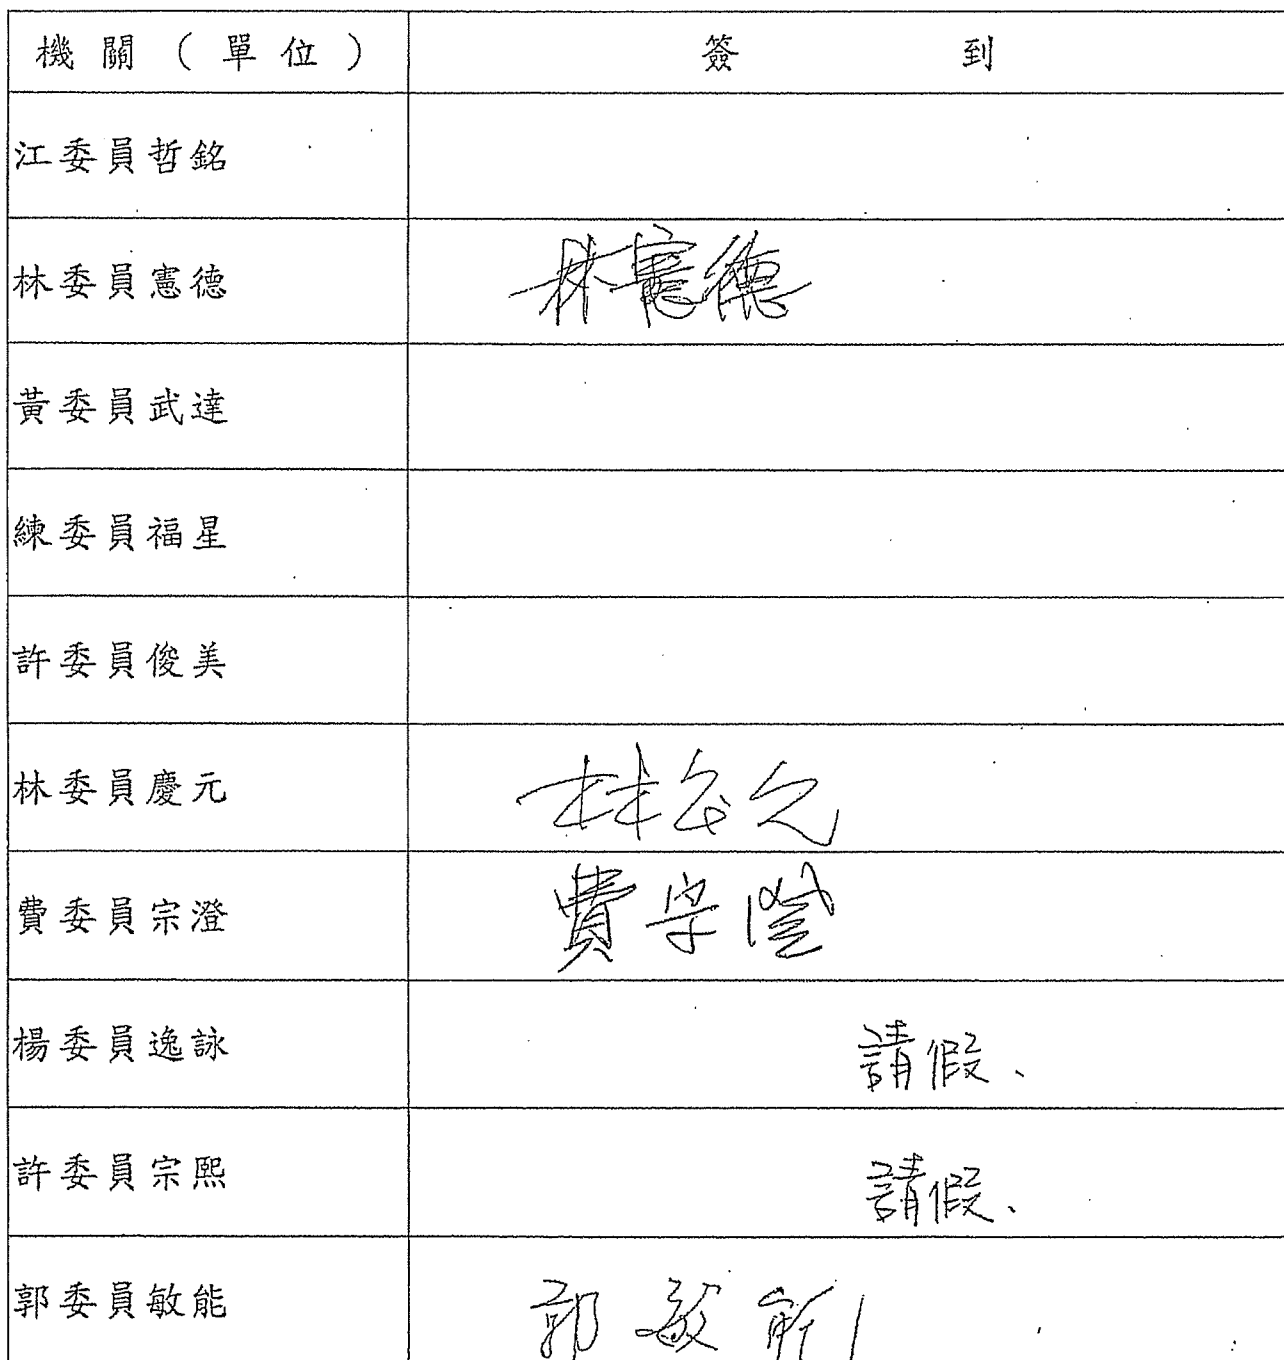 機關（單位） 簽到
江委員哲銘
林委員憲德 林憲德
黃委員武達
練委員福星
許委員俊美
林委員慶元 林慶元
費委員宗澄 費宗澄
楊委員逸詠 請假、
許委員宗熙 請假、
郭委員敏能 郭敏能